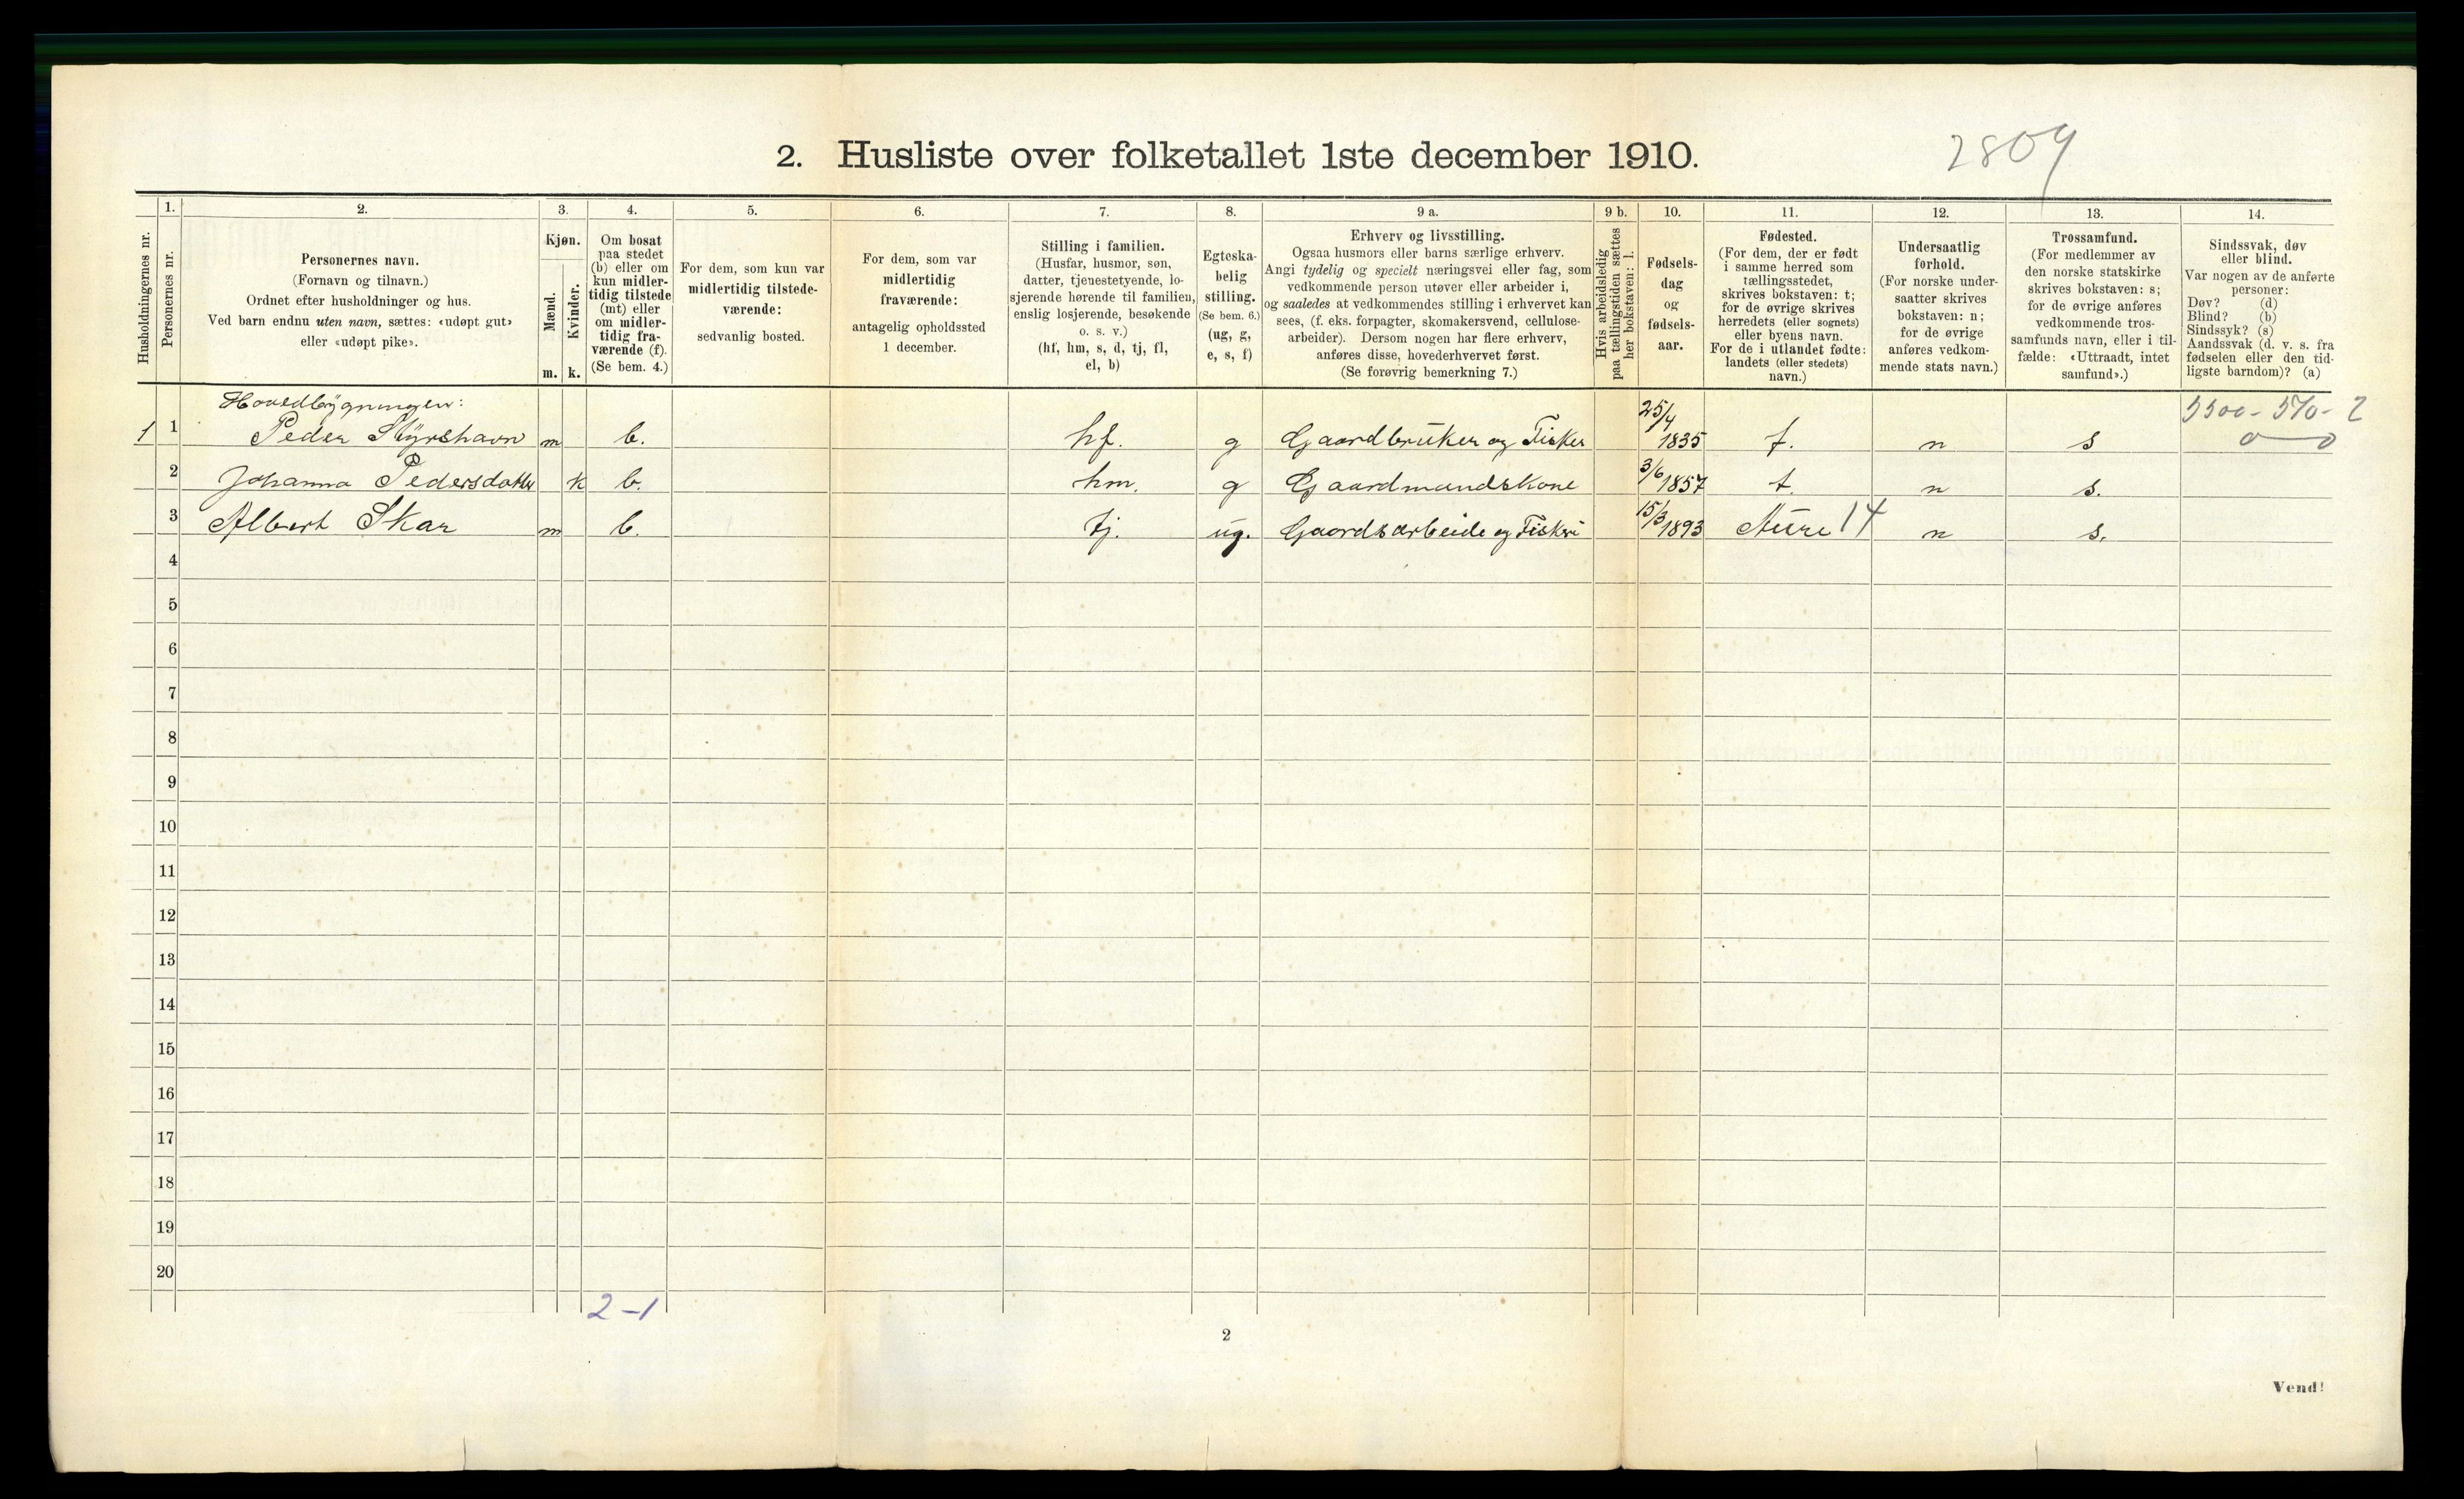 2. Husliste over folketallet 1ste december 1910.
2809
Husholdningernes nr.
1.
Personernes nr.
2.
Personernes navn.
(Fornavn og tilnavn.)
Ordnet efter husholdninger og hus.
Ved barn endnu uten navn, sættes: «udøpt gut»
eller «udøpt pike».
3.
Kjøn.
Mænd.
Kvinder.
m. k.
4.
Om bosat
paa stedet
(b) eller om
kun midler-
tidig tilstede
(mt) eller
om midler-
tidig fra-
værende (f).
(Se bem. 4.)
5.
For dem, som kun var
midlertidig tilstede-
værende:
sedvanlig bosted.
6.
For dem, som var
midlertidig
fraværende:
antagelig opholdssted
1 december.
7.
Stilling i familien.
(Husfar, husmor, søn,
datter, tjenestetyende, lo-
sjerende hørende til familien,
enslig losjerende, besøkende
o. s. v.)
(hf, hm, s, d, tj, fl,
el, b)
8.
Egteska-
belig
stilling.
(Se bem. 6.)
(ug, g,
e, s, f)
9 a.
Erhverv og livsstilling.
Ogsaa husmors eller barns særlige erhverv.
Angi tydelig og specielt næringsvei eller fag, som
vedkommende person utøver eller arbeider i,
og saaledes at vedkommendes stilling i erhvervet kan
sees, (f. eks. forpagter, skomakersvend, cellulose-
arbeider). Dersom nogen har flere erhverv,
anføres disse, hovederhvervet først.
(Se forøvrig bemerkning 7.)
9 b.
Hvis arbeidsledig
paa tællingstiden sættes
her bokstaven: l.
10.
Fødsels-
dag
og
fødsels-
aar.
11.
Fødested.
(For dem, der er født
i samme herred som
tællingsstedet,
skrives bokstaven: t;
for de øvrige skrives
herredets (eller sognets)
eller byens navn.
For de i utlandet fødte:
landets (eller stedets)
navn.)
12.
Undersaatlig
forhold.
(For norske under-
saatter skrives
bokstaven: n;
for de øvrige
anføres vedkom-
mende stats navn.)
13.
Trossamfund.
(For medlemmer av
den norske statskirke
skrives bokstaven: s;
for de øvrige anføres
vedkommende tros-
samfunds navn, eller i til-
fælde: «Uttraadt, intet
samfund».)
14.
Sindssvak, døv
eller blind.
Var nogen av de anførte
personer:
Døv? (d)
Blind? (b)
Sindssyk? (s)
Aandssvak (d. v. s. fra
fødselen eller den tid-
ligste barndom)? (a)
Hovedbygningen:
5500 - 570 - 2
0 — 0
1 1 Peder Skyrshavn m b. hf. g Gaardbruker og Fisker 25/4 1835 t. n s
2 Johanna Pedersdatter k b. hm. g Gaardmandskone 3/6 1857 t. n s.
3 Albert Skar m b. tj. ug. Gaardsarbeide og Fiskeri 15/3 1893 Aure 14 n s.
4
5
6
7
8
9
10
11
12
13
14
15
16
17
18
19
20
2-1
2
Vend!